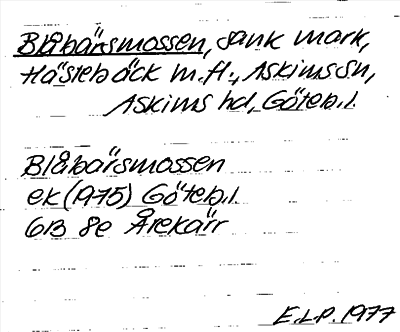 Blåbärsmossen, sank mark,
Hästebäck m.fl., Askims sn,
Askims hd, Göteb.l.
Blåbärsmossen
ek (1975) Göteb.l
6B 8e Årekärr
E.L.P. 1977